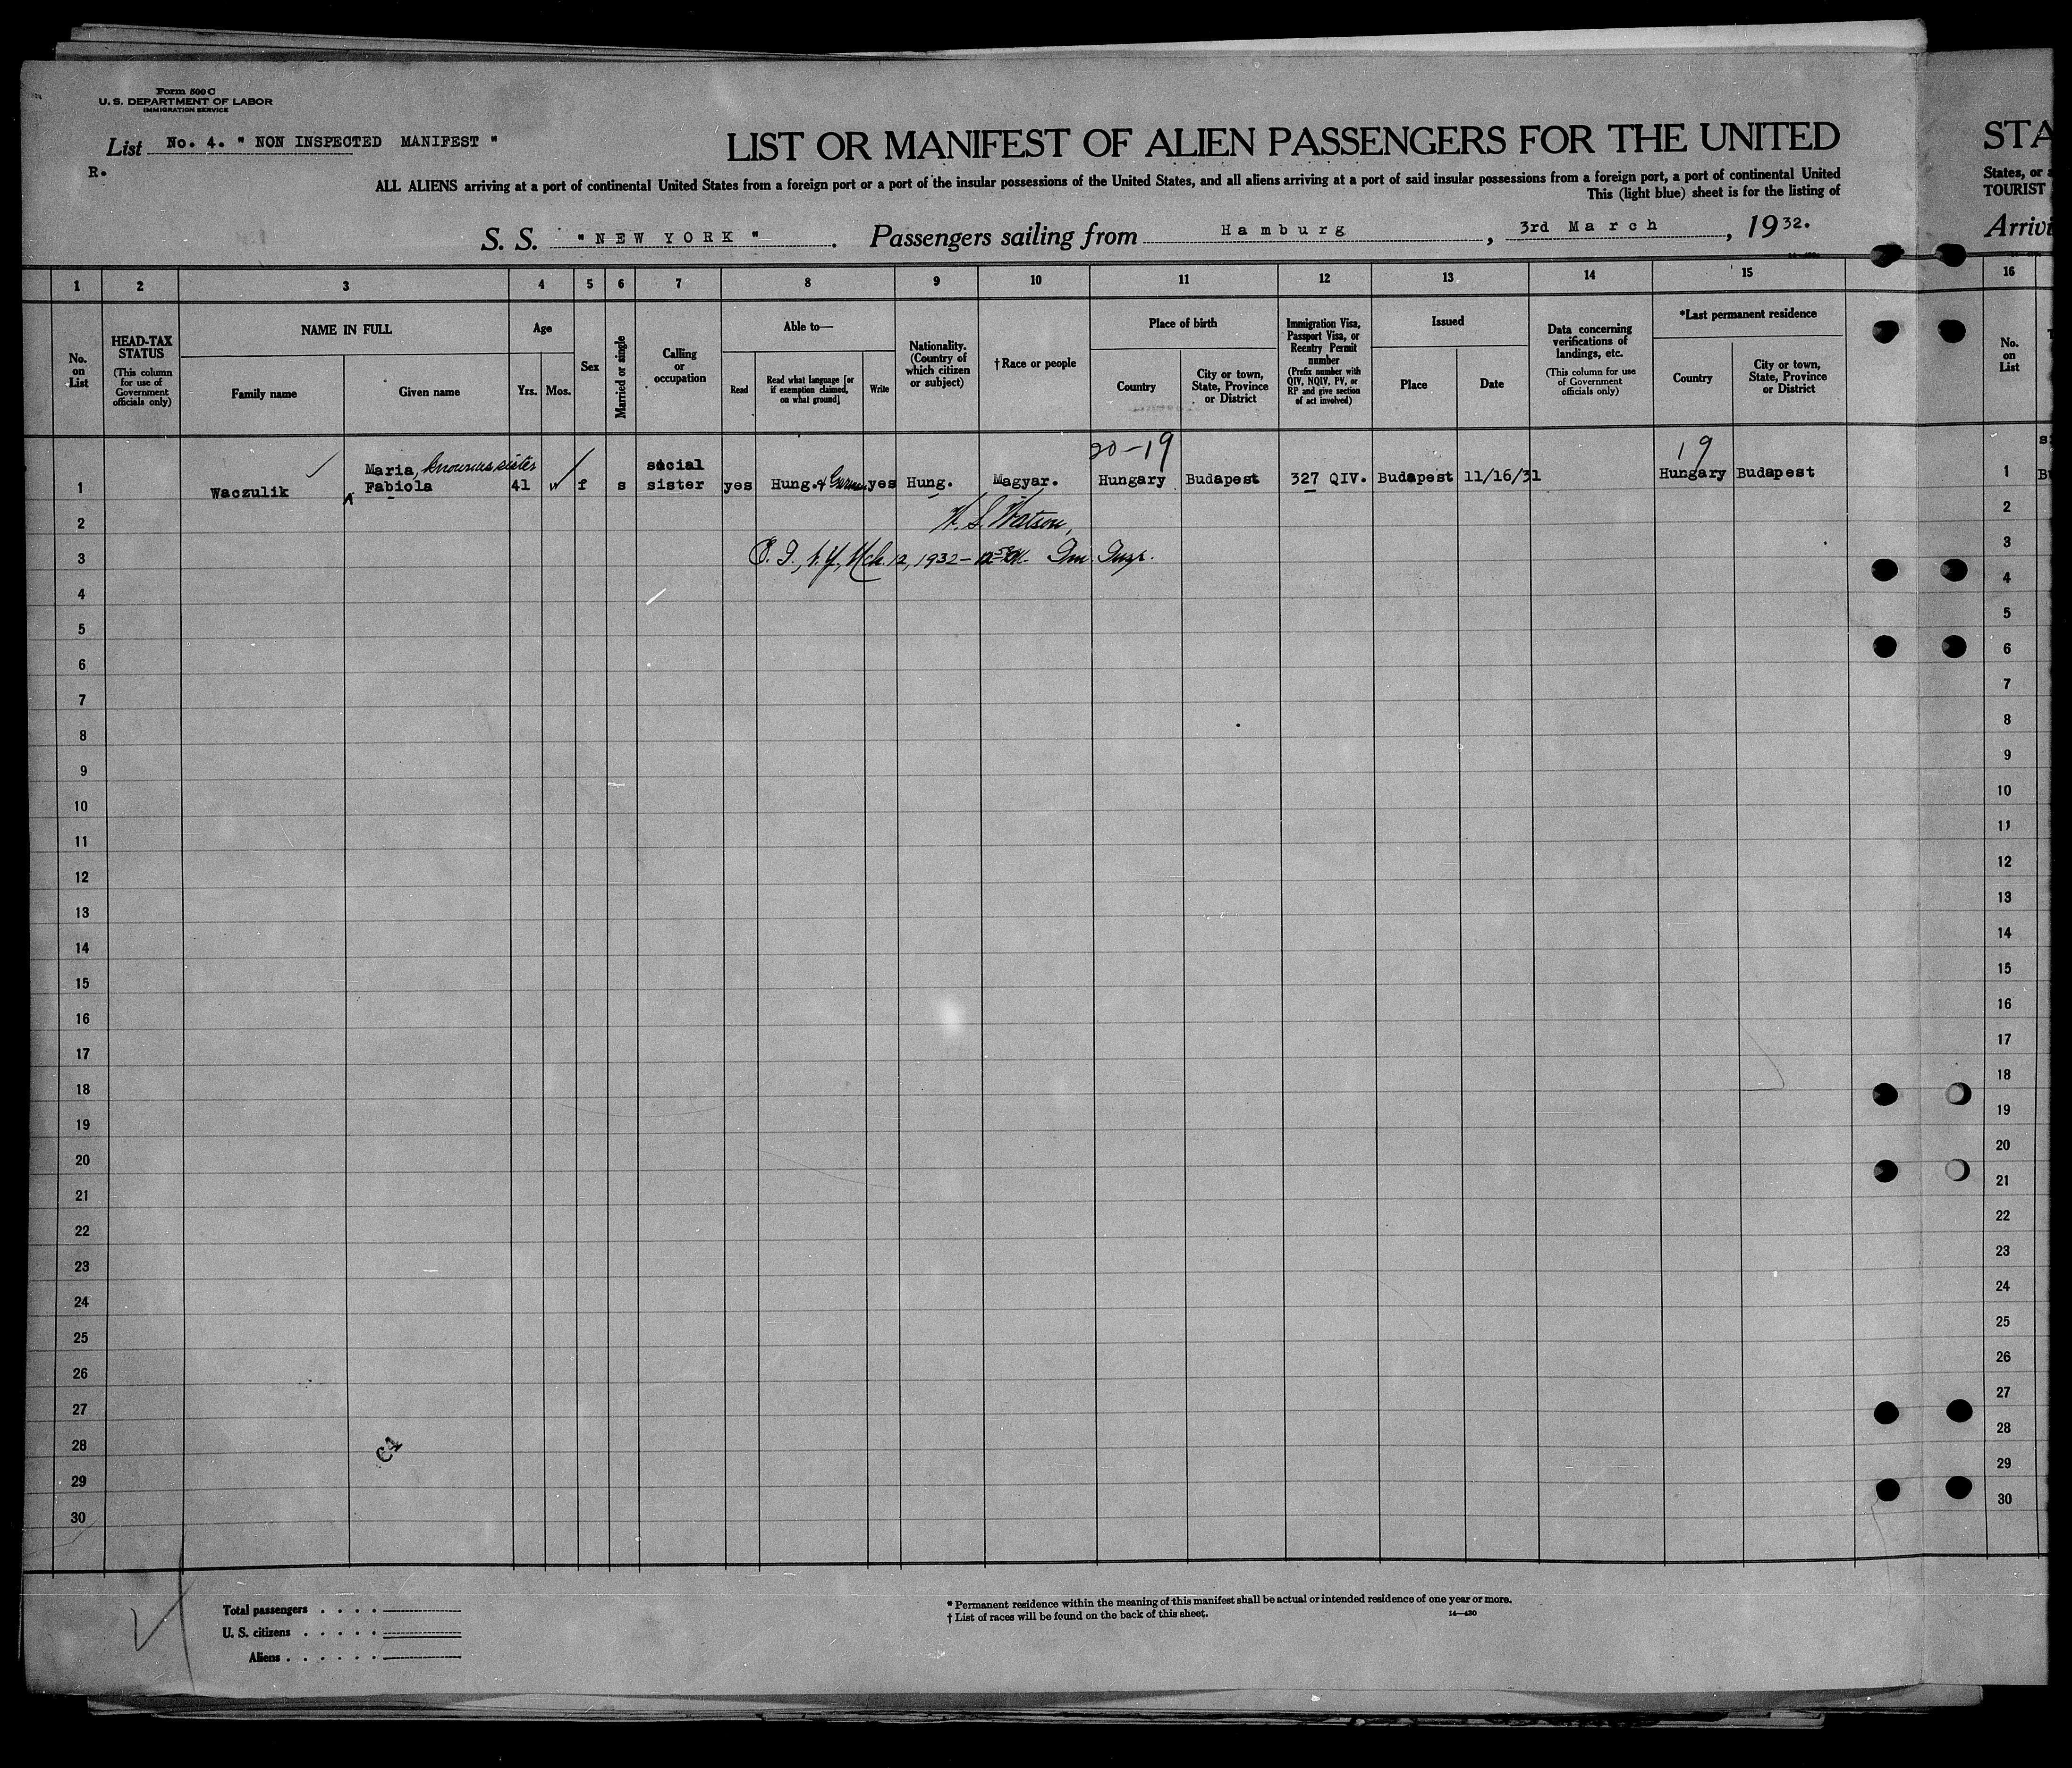 Form 500 C
U. S. DEPARTMENT OF LABOR
IMMIGRATION SERVICE
List No. 4. " NON INSPECTED MANIFEST "
R.
LIST OR MANIFEST OF ALIEN PASSENGERS FOR THE UNITED
STA
ALL ALIENS arriving at a port of continental United States from a foreign port or a port of the insular possessions of the United States, and all aliens arriving at a port of said insular possessions from a foreign port, a port of continental United
States, or a
This (light blue) sheet is for the listing of
TOURIST
S. S. " N E W Y O R K ". Passengers sailing from H a m b u r g , 3rd M a r c h , 19 32.
Arrivi
1 2 3 4 5 6 7 8 9 10 11 12 13 14 15 16
No. on List
HEAD-TAX STATUS
(This column for use of Government officials only)
NAME IN FULL
Family name
Given name
Age
Yrs.
Mos.
Sex
Married or single
Calling or occupation
Able to—
Read
Read what language [or if exemption claimed, on what ground]
Write
Nationality. (Country of which citizen or subject)
† Race or people
Place of birth
Country
City or town, State, Province or District
Immigration Visa, Passport Visa, or Reentry Permit number
(Prefix number with QIV, NQIV, PV, or RP and give section of act involved)
Issued
Place
Date
Data concerning verifications of landings, etc.
(This column for use of Government officials only)
*Last permanent residence
Country
City or town, State, Province or District
No. on List
20-19
19
Maria, known as sister
social
1 Waczulik Fabiola 41 f s sister yes Hung. & German yes Hung. Magyar. Hungary Budapest 327 QIV. Budapest 11/16/31 Hungary Budapest 1
2 W. S. Watson, 2
3 E. I., N.Y, Mch. 12, 1932 – Im. Insp. 3
4 4
5 5
6 6
7 7
8 8
9 9
10 10
11 11
12 12
13 13
14 14
15 15
16 16
17 17
18 18
19 19
20 20
21 21
22 22
23 23
24 24
25 25
26 26
27 27
28 28
29 29
30 30
C4
Total passengers . . . .
U. S. citizens . . . . .
Aliens . . . . . .
* Permanent residence within the meaning of this manifest shall be actual or intended residence of one year or more.
† List of races will be found on the back of this sheet.
14—430